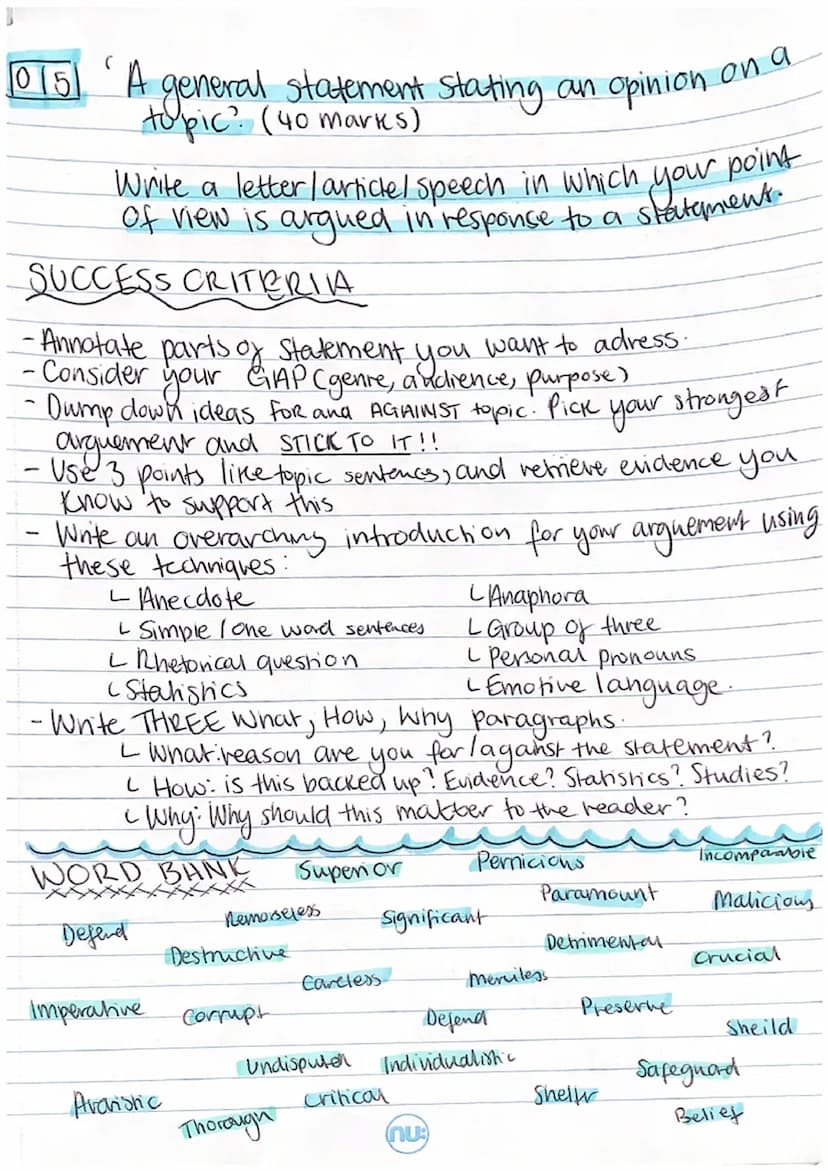 05 'A general statement stating an opinion on a
topic'. (40 marks)
Write a letter/article/speech in which your point
of view is argued in response to a statement.
SUCCESS CRITERIA
- Annotate parts of statement you want to adress.
- Consider your GAP (genre, audience, purpose)
- Dump down ideas FOR and AGAINST topic. Pick your strongest
arguement and STICK TO IT!!
- Use 3 points like topic sentences, and retrieve evidence you
know to support this
- Write an overarching introduction for your arguement using
these techniques:
Anecdote Anaphora
Simple / one word sentences Group of three
Rhetorical question Personal pronouns
Statistics Emotive language.
- Write THREE What, How, Why paragraphs.
What: reason are you for/against the statement?
How: is this backed up? Evidence? Statistics? Studies?
Why: Why should this matter to the reader?
WORD BANK Superior Pernicious Incomparable
Paramount Malicious
Defend Remorseless Significant
Destructive Detrimental Crucial
Careless Merciless
Imperative Corrupt Defend Preserve Sheild
Undisputed Individualistic Safeguard
Avaristic Critical Shelter
Thorough Belief
nu: